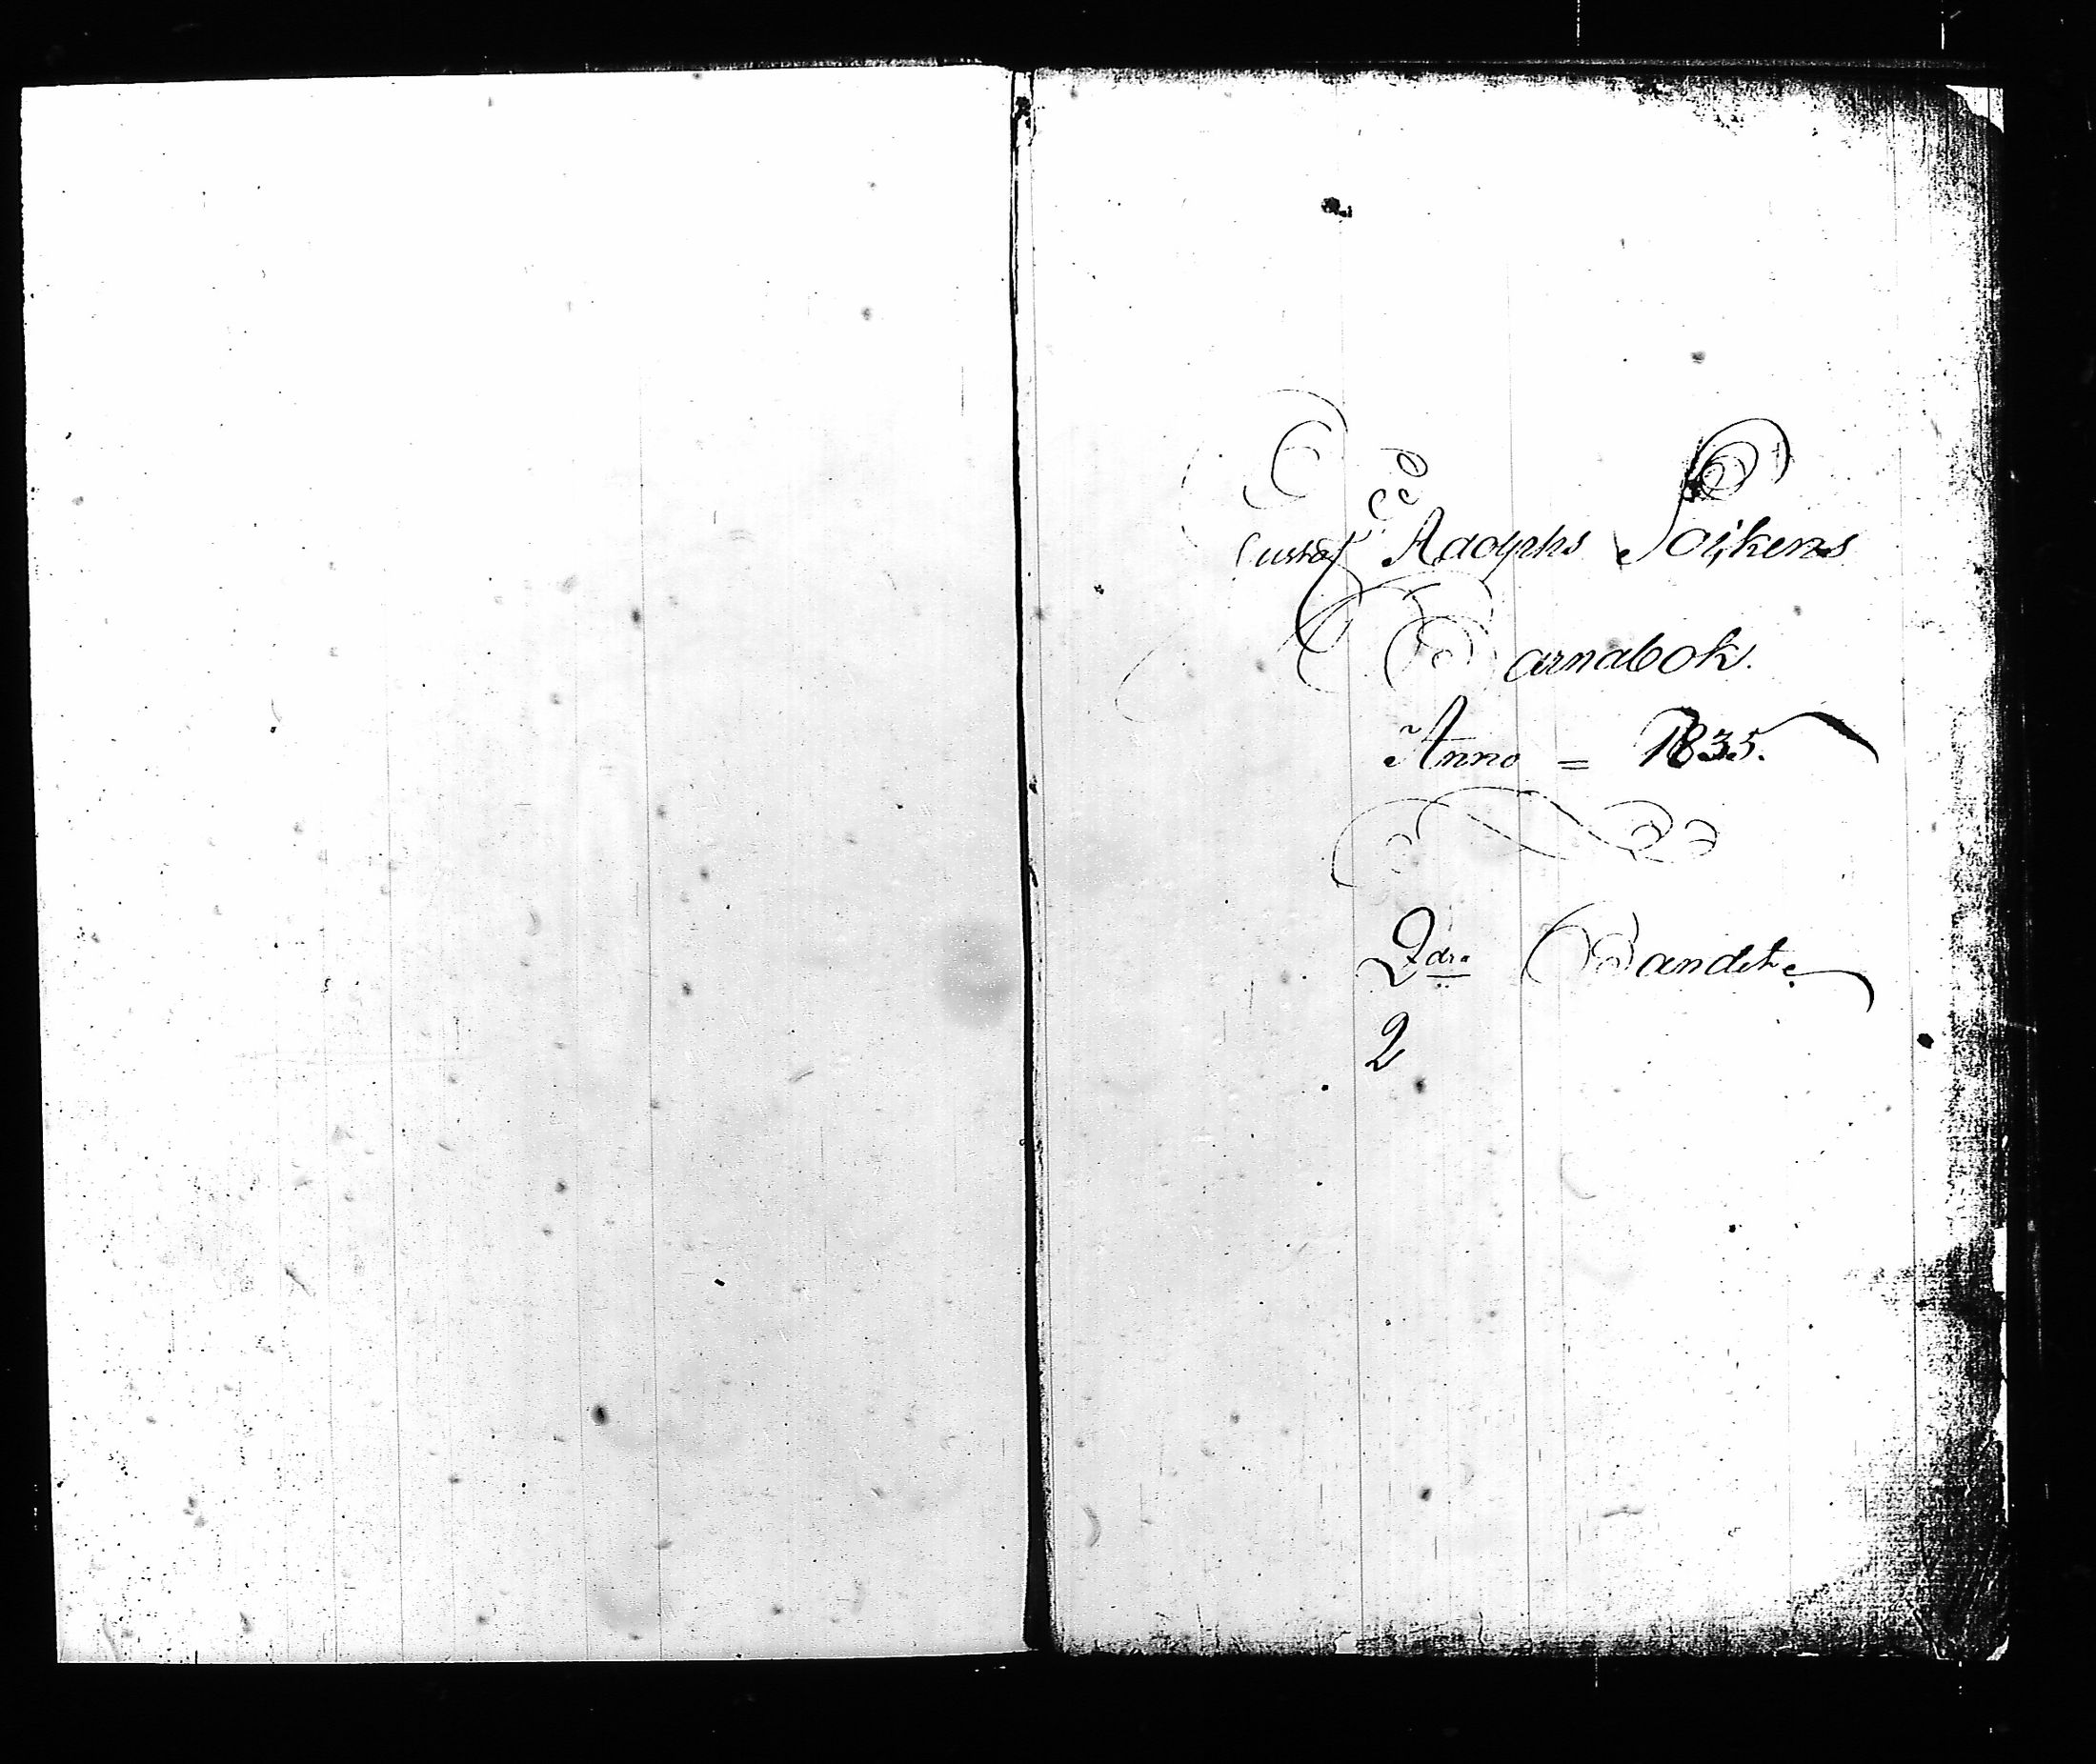 Gustaf Adolphs Sockens
Barnabok.
Anno = 1835.
2dra Bandet.
2